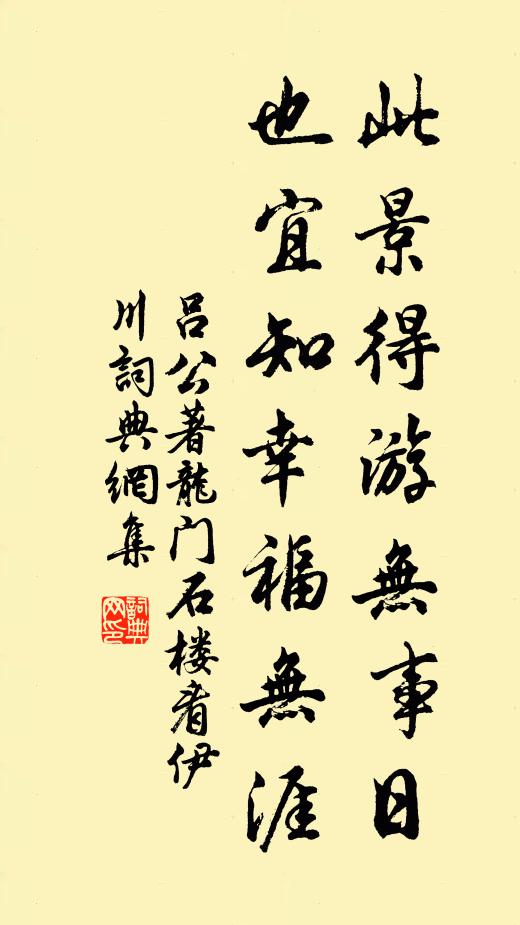 此景得游無事日
也宜知幸福無涯
吕公著龍门石楼看伊
川詞典網集
詞典网印